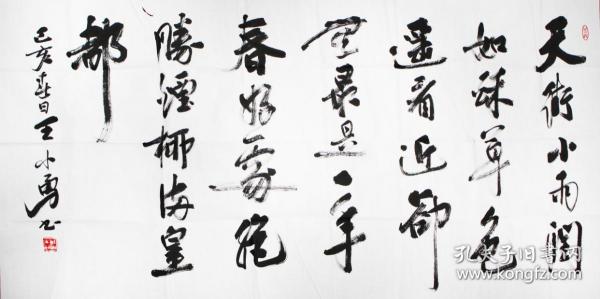 天街小雨潤
如酥草色
遥看近卻
無最是一年
春好處絕
勝煙柳滿皇
都
己亥春日王小勇书
孔夫子旧书网
www.kongfz.com